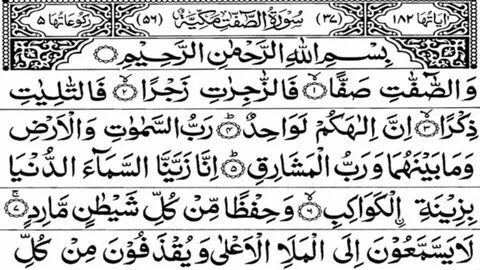 اٰیَاتُهَا ۱۸۲ (۳۷) سُوْرَةُ الصّٰٓفّٰتِ مَكِّیَّةٌ (۵۶) رُكُوْعَاتُهَا ۵
بِسْمِ اللّٰهِ الرَّحْمٰنِ الرَّحِیْمِ
وَالصّٰٓفّٰتِ صَفًّا ۙ‏﴿۱﴾ فَالزّٰجِرٰتِ زَجْرًا ۙ‏﴿۲﴾ فَالتّٰلِیٰتِ
ذِكْرًا ۙ‏﴿۳﴾ اِنَّ اِلٰهَكُمْ لَوَاحِدٌ ؕ‏﴿۴﴾ رَبُّ السَّمٰوٰتِ وَالْاَرْضِ
وَمَا بَیْنَهُمَا وَرَبُّ الْمَشَارِقِ ؕ‏﴿۵﴾ اِنَّا زَیَّنَّا السَّمَآءَ الدُّنْیَا
بِزِیْنَةِ ۟الْكَوَاكِبِ ۙ‏﴿۶﴾ وَحِفْظًا مِّنْ كُلِّ شَیْطٰنٍ مَّارِدٍ ۚ‏﴿۷﴾
لَا یَسَّمَّعُوْنَ اِلَی الْمَلَاِ الْاَعْلٰی وَیُقْذَفُوْنَ مِنْ كُلِّ